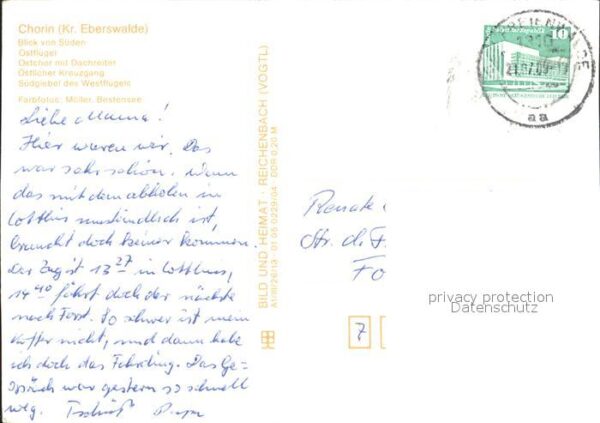 Chorin (Kr. Eberswalde)
Blick von Süden
Ostflügel
Ostchor mit Dachreiter
Östlicher Kreuzgang
Südgiebel des Westflügels
Farbfotos: Müller, Bestensee
Liebe Mama!
Hier waren wir. Das
war sehr schön. Wenn
das mit dem abholen in
Cottbus umständlich ist,
braucht doch keiner kommen.
Der Zug ist 13 27 in Cottbus,
14 40 fährt doch der nächste
nach Forst. So schwer ist mein
Koffer nicht, und dann habe
ich doch das Fahrzeug. Das Ge-
spräch war gestern so schnell
weg. Tschüß
BILD UND HEIMAT · REICHENBACH (VOGTL)
A1/III/26/13 · 01 05 0229/04 · DDR 0,20 M
10
aa
Renate
Str. d. F
Fo
7
privacy protection
Datenschutz